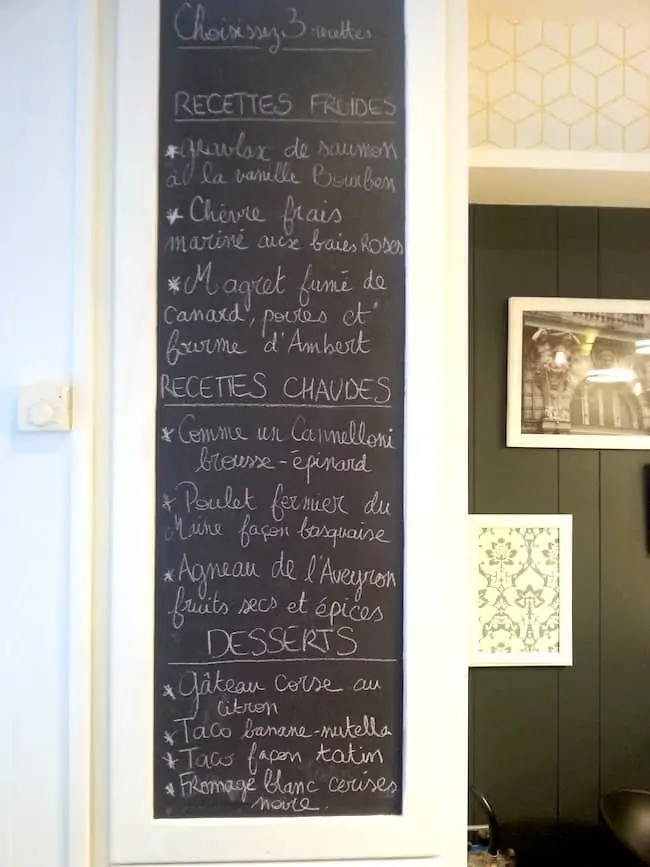 Choisissez 3 recettes
RECETTES FROIDES
* gravlax de saumon
à la vanille Bourbon
* Chèvre frais
mariné aux baies ROSES
* Magret fumé de
canard, poires et
fourme d'Ambert
RECETTES CHAUDES
* Comme un Cannelloni
brousse-épinard
* Poulet fermier du
façon basquaise
* Agneau de l'Aveyron
fruits secs et épices
DESSERTS
* Gâteau Corse au
citron
* Taco banane-nutella
* Taco façon tatin
* Fromage blanc cerises
noire.